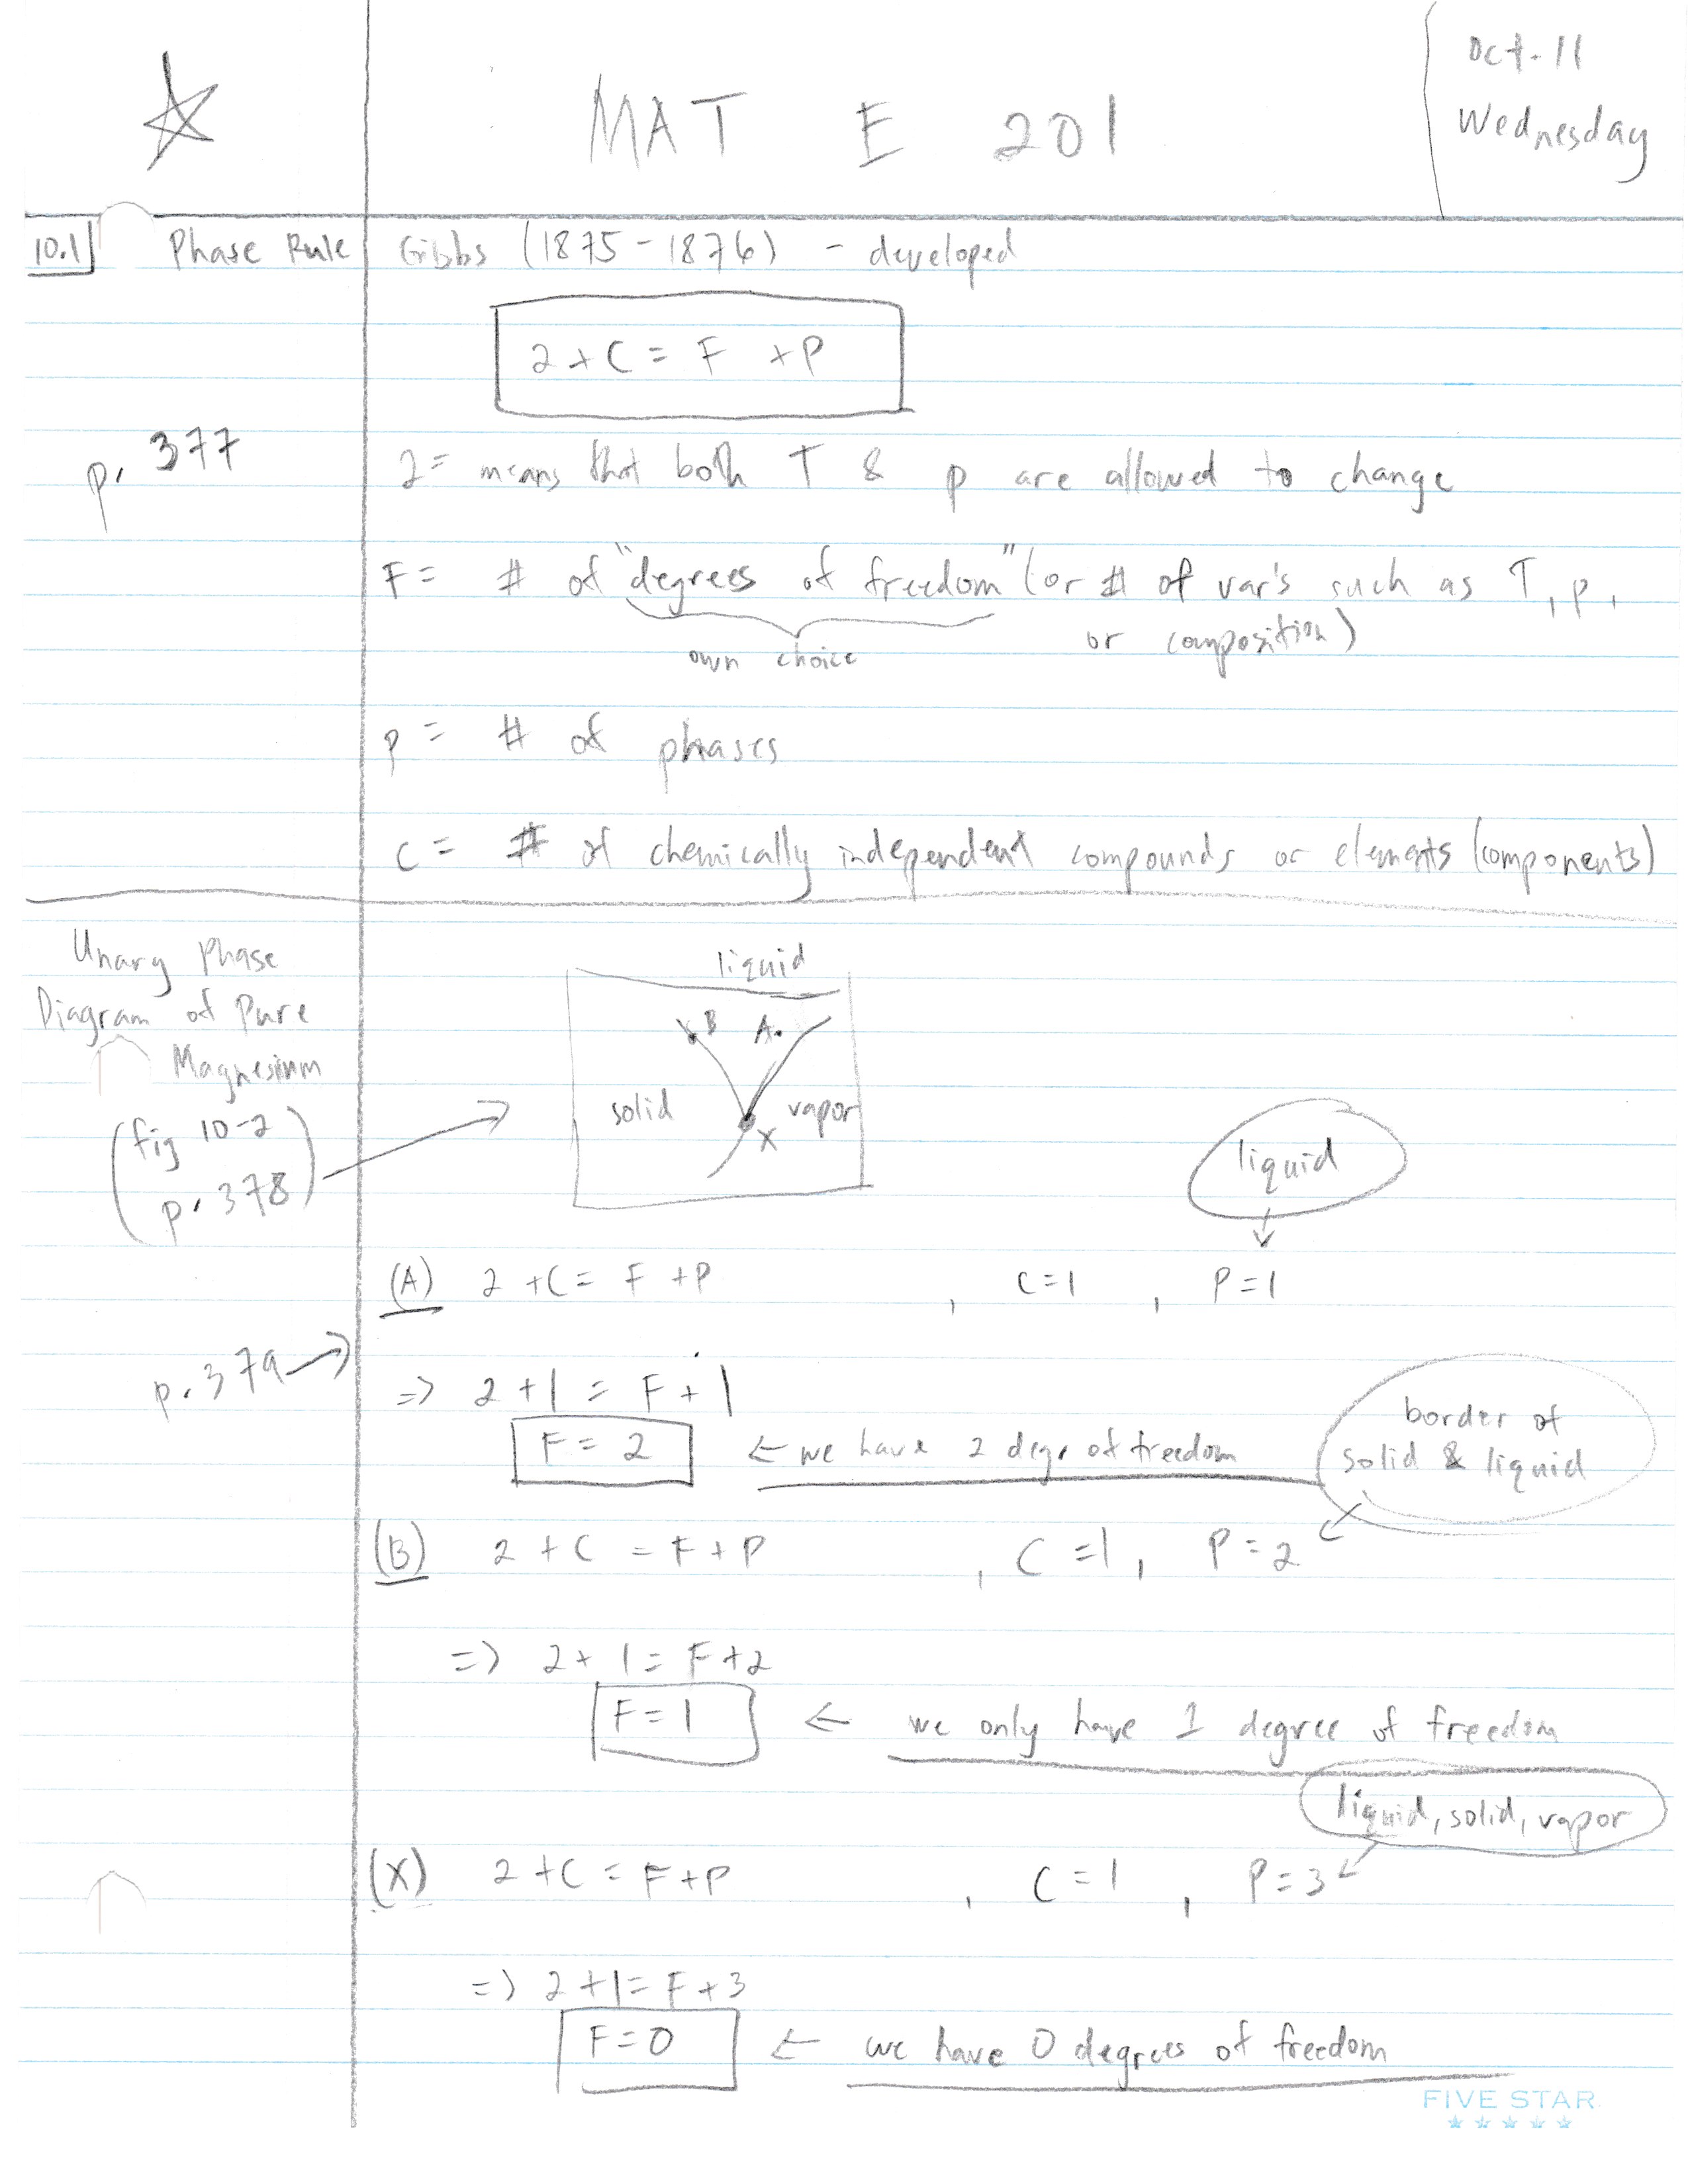 MAT E 201
Oct. 11
Wednesday
10.1 Phase Rule
Gibbs (1875-1876) - developed
2 + C = F + P
p. 377
2 = means that both T & p are allowed to change
F = # of "degrees of freedom" (or # of var's such as T, p,
or composition)
own choice
p = # of phases
C = # of chemically independent compounds or elements (components)
Unary Phase
Diagram of Pure
Magnesium
(fig 10-2
p. 378)
liquid
B
A
solid
vapor
X
liquid
(A) 2 + C = F + P , C = 1 , P = 1
p. 379
=> 2 + 1 = F + 1
F = 2 ← we have 2 degr of freedom
border of
solid & liquid
(B) 2 + C = F + P , C = 1, P = 2
=> 2 + 1 = F + 2
F = 1 ← we only have 1 degree of freedom
liquid, solid, vapor
(X) 2 + C = F + P , C = 1 , P = 3
=> 2 + 1 = F + 3
F = 0 ← we have 0 degrees of freedom
FIVE STAR